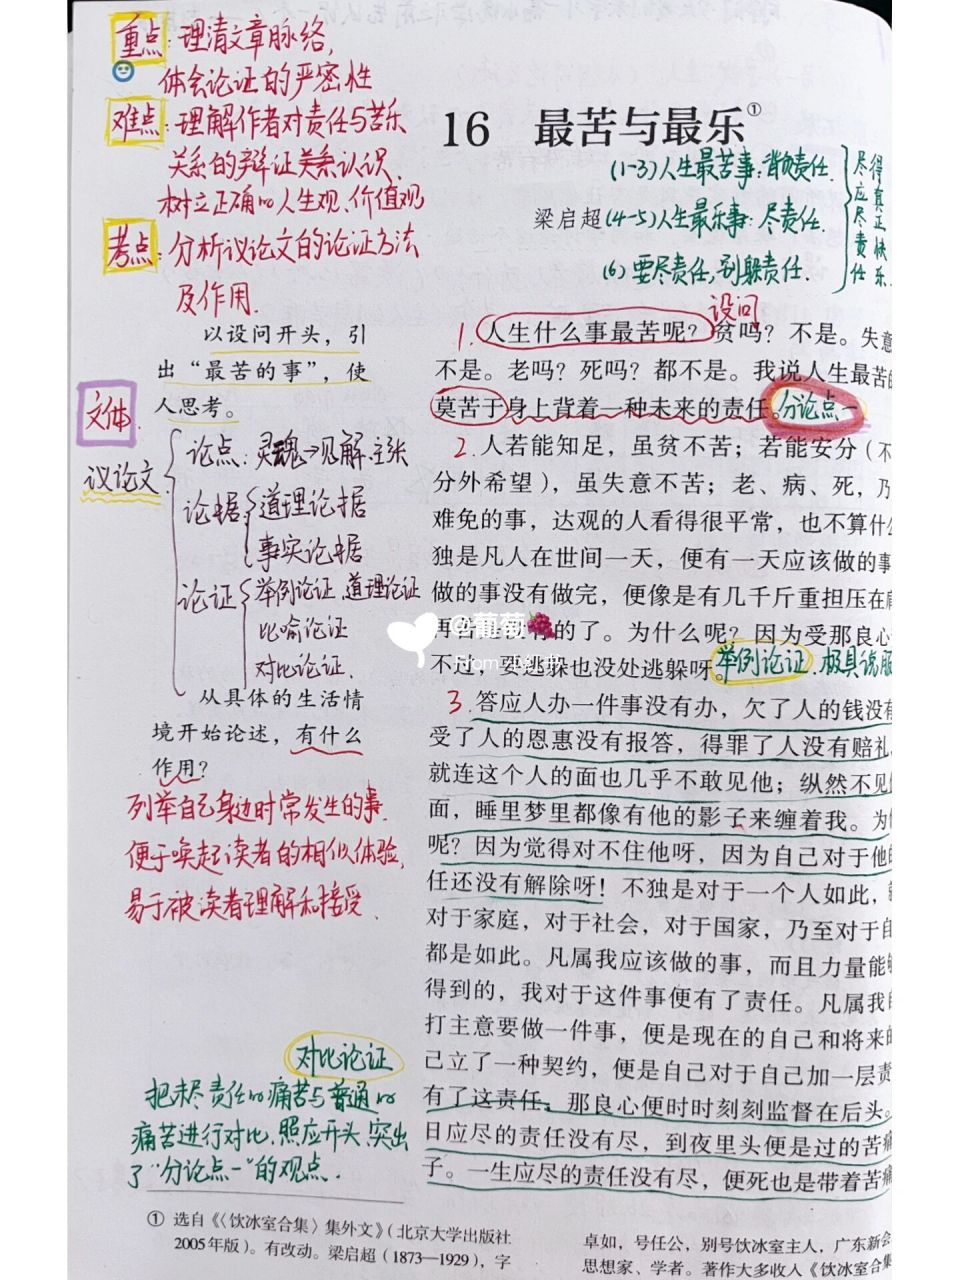 重点：理清文章脉络，
体会论证的严密性
难点：理解作者对责任与苦乐
关系的辩证关系认识，
树立正确的人生观、价值观
考点：分析议论文的论证方法
及作用.
16 最苦与最乐①
(1-3)人生最苦事:背负责任.
梁启超(4-5)人生最乐事:尽责任.
(6)要尽责任,别躲责任.
尽应尽责任
得真正快乐.
以设问开头，引
出“最苦的事”，使
人思考。
文体
议论文
论点:灵魂→见解.主张
论据
道理论据
事实论据
论证
举例论证.道理论证
比喻论证
对比论证.
从具体的生活情
境开始论述，有什么
作用？
列举自己身边时常发生的事.
便于唤起读者的相似体验,
易于被读者理解和接受.
对比论证
把未尽责任的痛苦与普通的
痛苦进行对比.照应开头.突出
了“分论点一”的观点.
设问
1.人生什么事最苦呢？贫吗？不是。失意
不是。老吗？死吗？都不是。我说人生最苦的
莫苦于身上背着一种未来的责任。分论点一
2.人若能知足，虽贫不苦；若能安分（不
分外希望），虽失意不苦；老、病、死，乃
难免的事，达观的人看得很平常，也不算什么
独是凡人在世间一天，便有一天应该做的事
做的事没有做完，便像是有几千斤重担压在肩
再苦是没有的了。为什么呢？因为受那良心
不过，要逃躲也没处逃躲呀。举例论证.极具说服
3.答应人办一件事没有办，欠了人的钱没有
受了人的恩惠没有报答，得罪了人没有赔礼
就连这个人的面也几乎不敢见他；纵然不见他
面，睡里梦里都像有他的影子来缠着我。为什
呢？因为觉得对不住他呀，因为自己对于他的
任还没有解除呀！不独是对于一个人如此，就
对于家庭，对于社会，对于国家，乃至对于自
都是如此。凡属我应该做的事，而且力量能够
得到的，我对于这件事便有了责任。凡属我自
打主意要做一件事，便是现在的自己和将来的
己立了一种契约，便是自己对于自己加一层责
有了这责任，那良心便时时刻刻监督在后头。
日应尽的责任没有尽，到夜里头便是过的苦痛
子。一生应尽的责任没有尽，便死也是带着苦痛
@葡萄🍇
① 选自《〈饮冰室合集〉集外文》（北京大学出版社
2005年版）。有改动。梁启超（1873—1929），字
卓如，号任公，别号饮冰室主人，广东新会
思想家、学者。著作大多收入《饮冰室合集